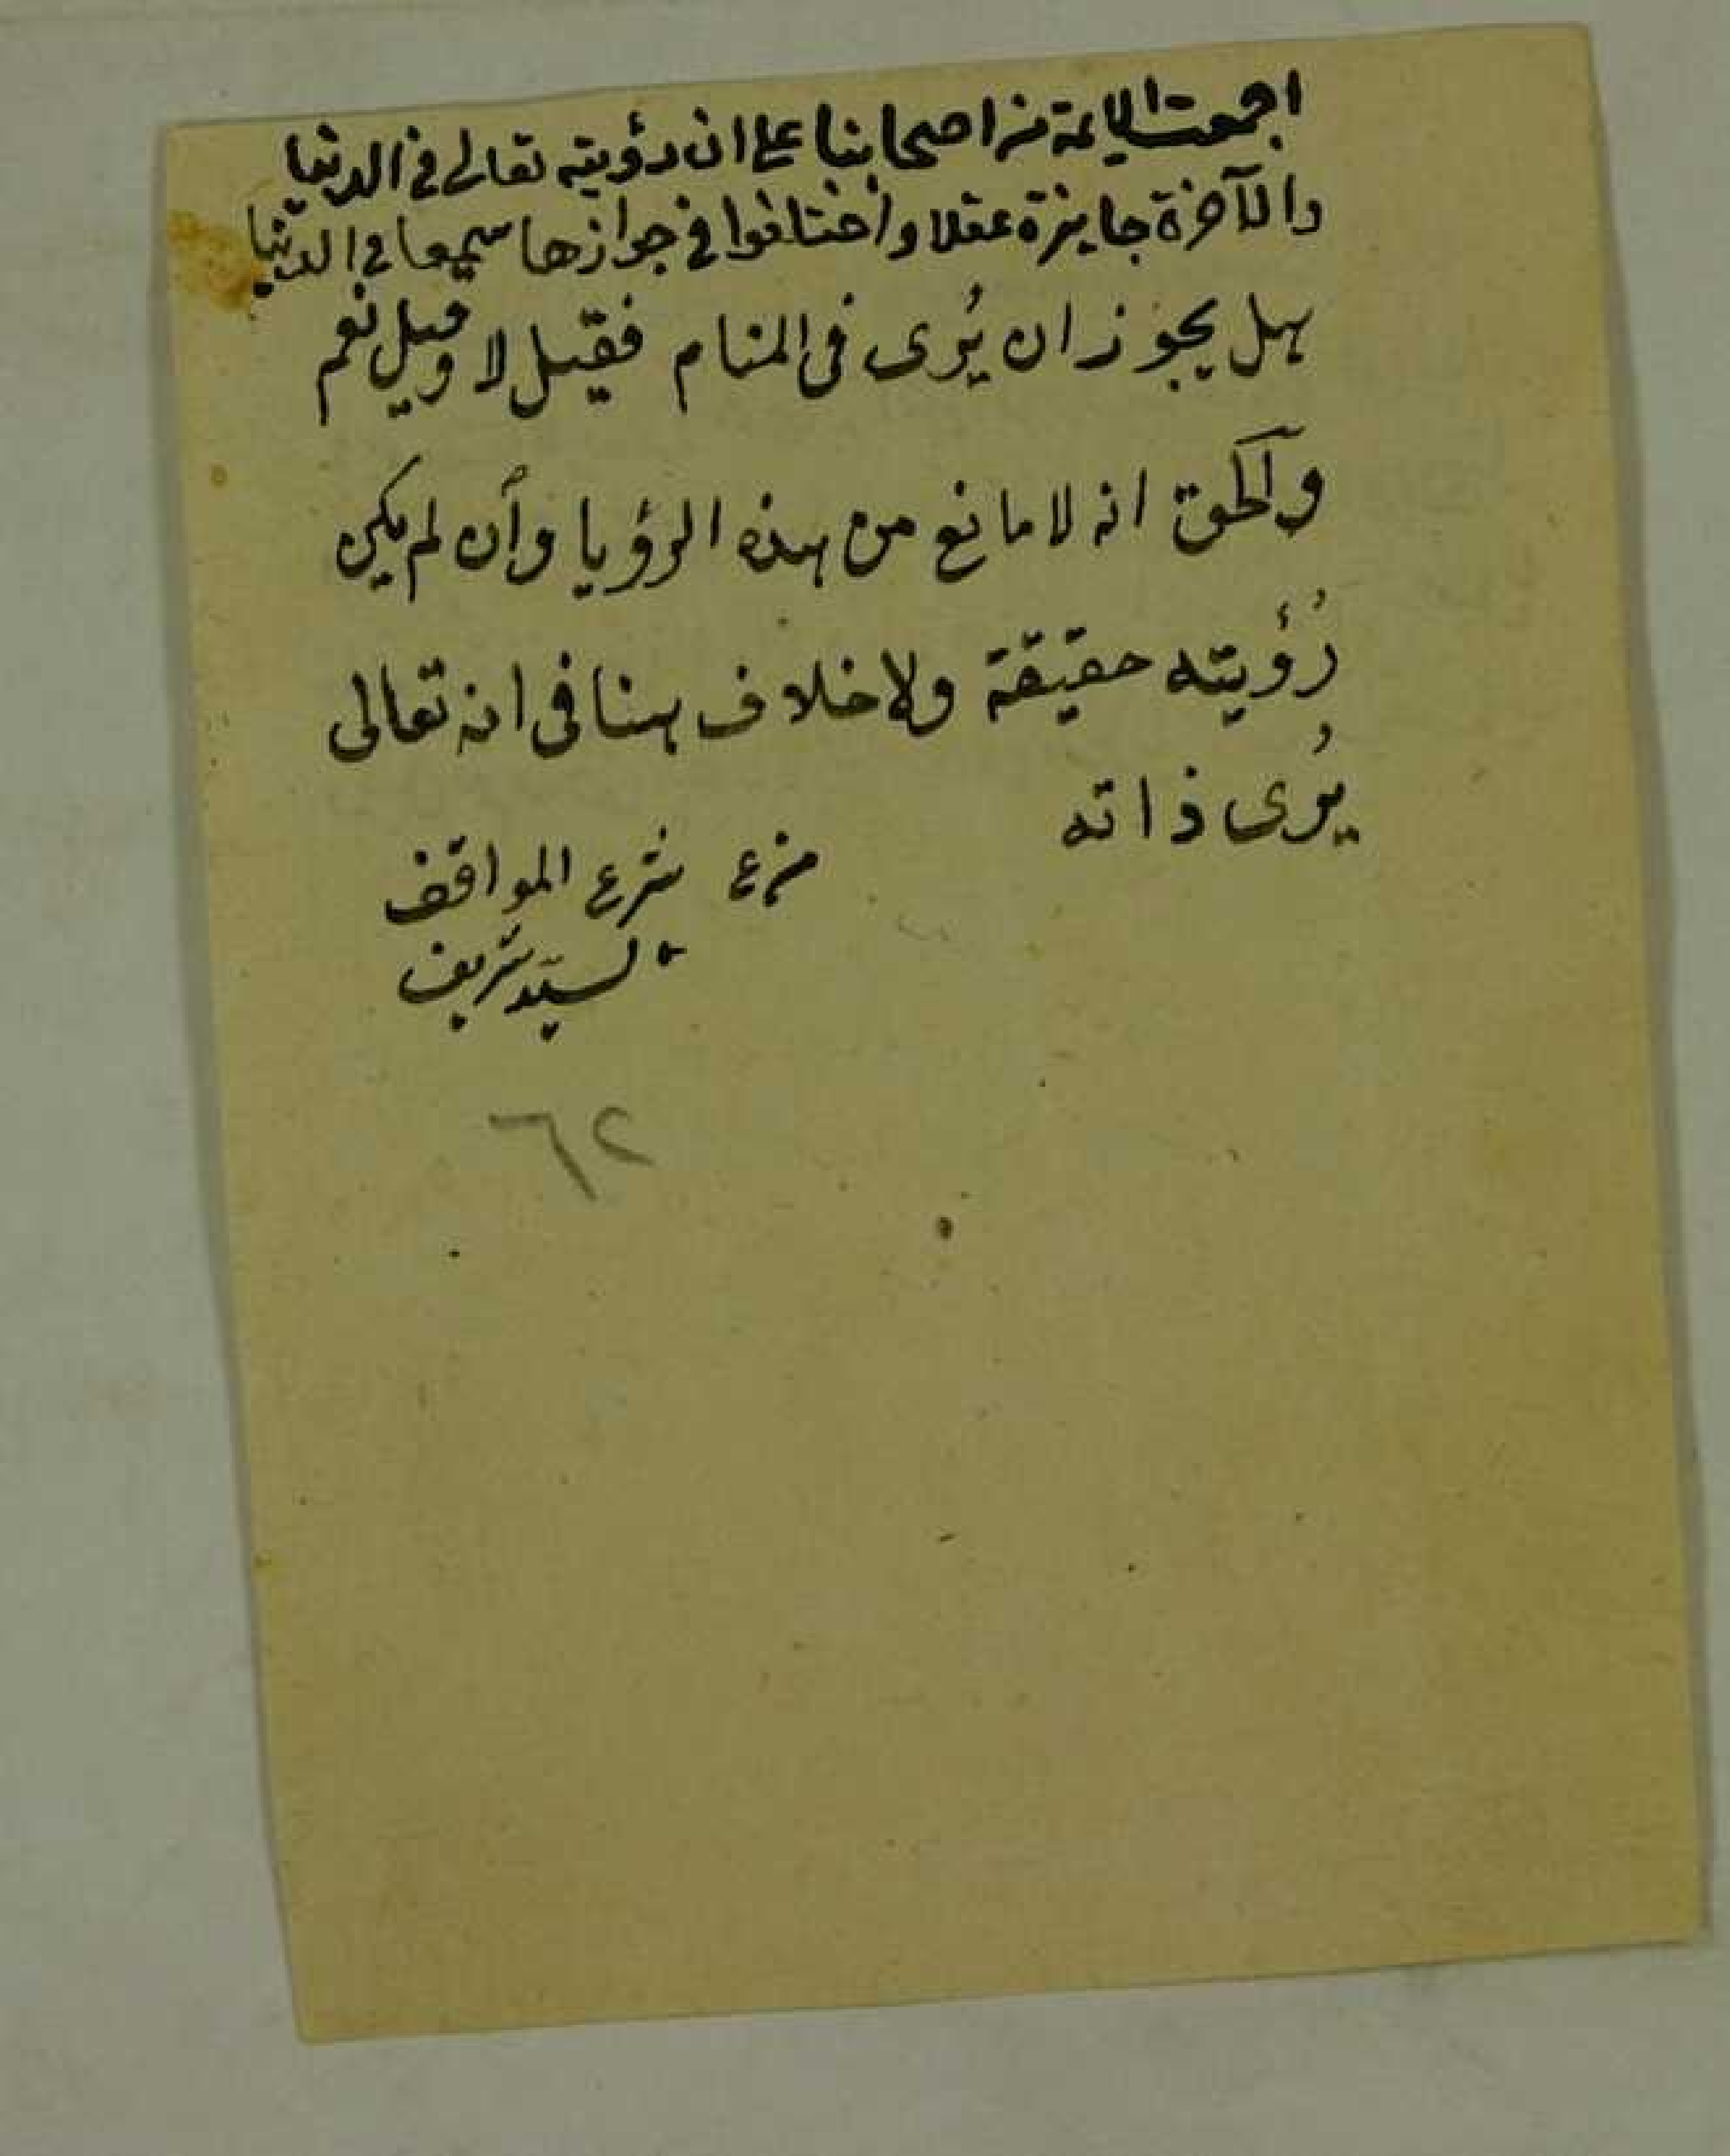 اجمعت الايمة من اصحابنا على ان رؤيته تعالى في الدنيا
والآخرة جايزة عقلا واختلفوا في جوازها سمعا في الدنيا
هل يجوز ان يُرى فى المنام فقيل لا وقيل نعم
والحق انه لا مانع من هذه الرؤيا وأن لم يكن
رُؤيته حقيقة ولا خلاف هنا فى انه تعالى
يُرى ذاته
من شرح المواقف
لسيد شريف
٦٢